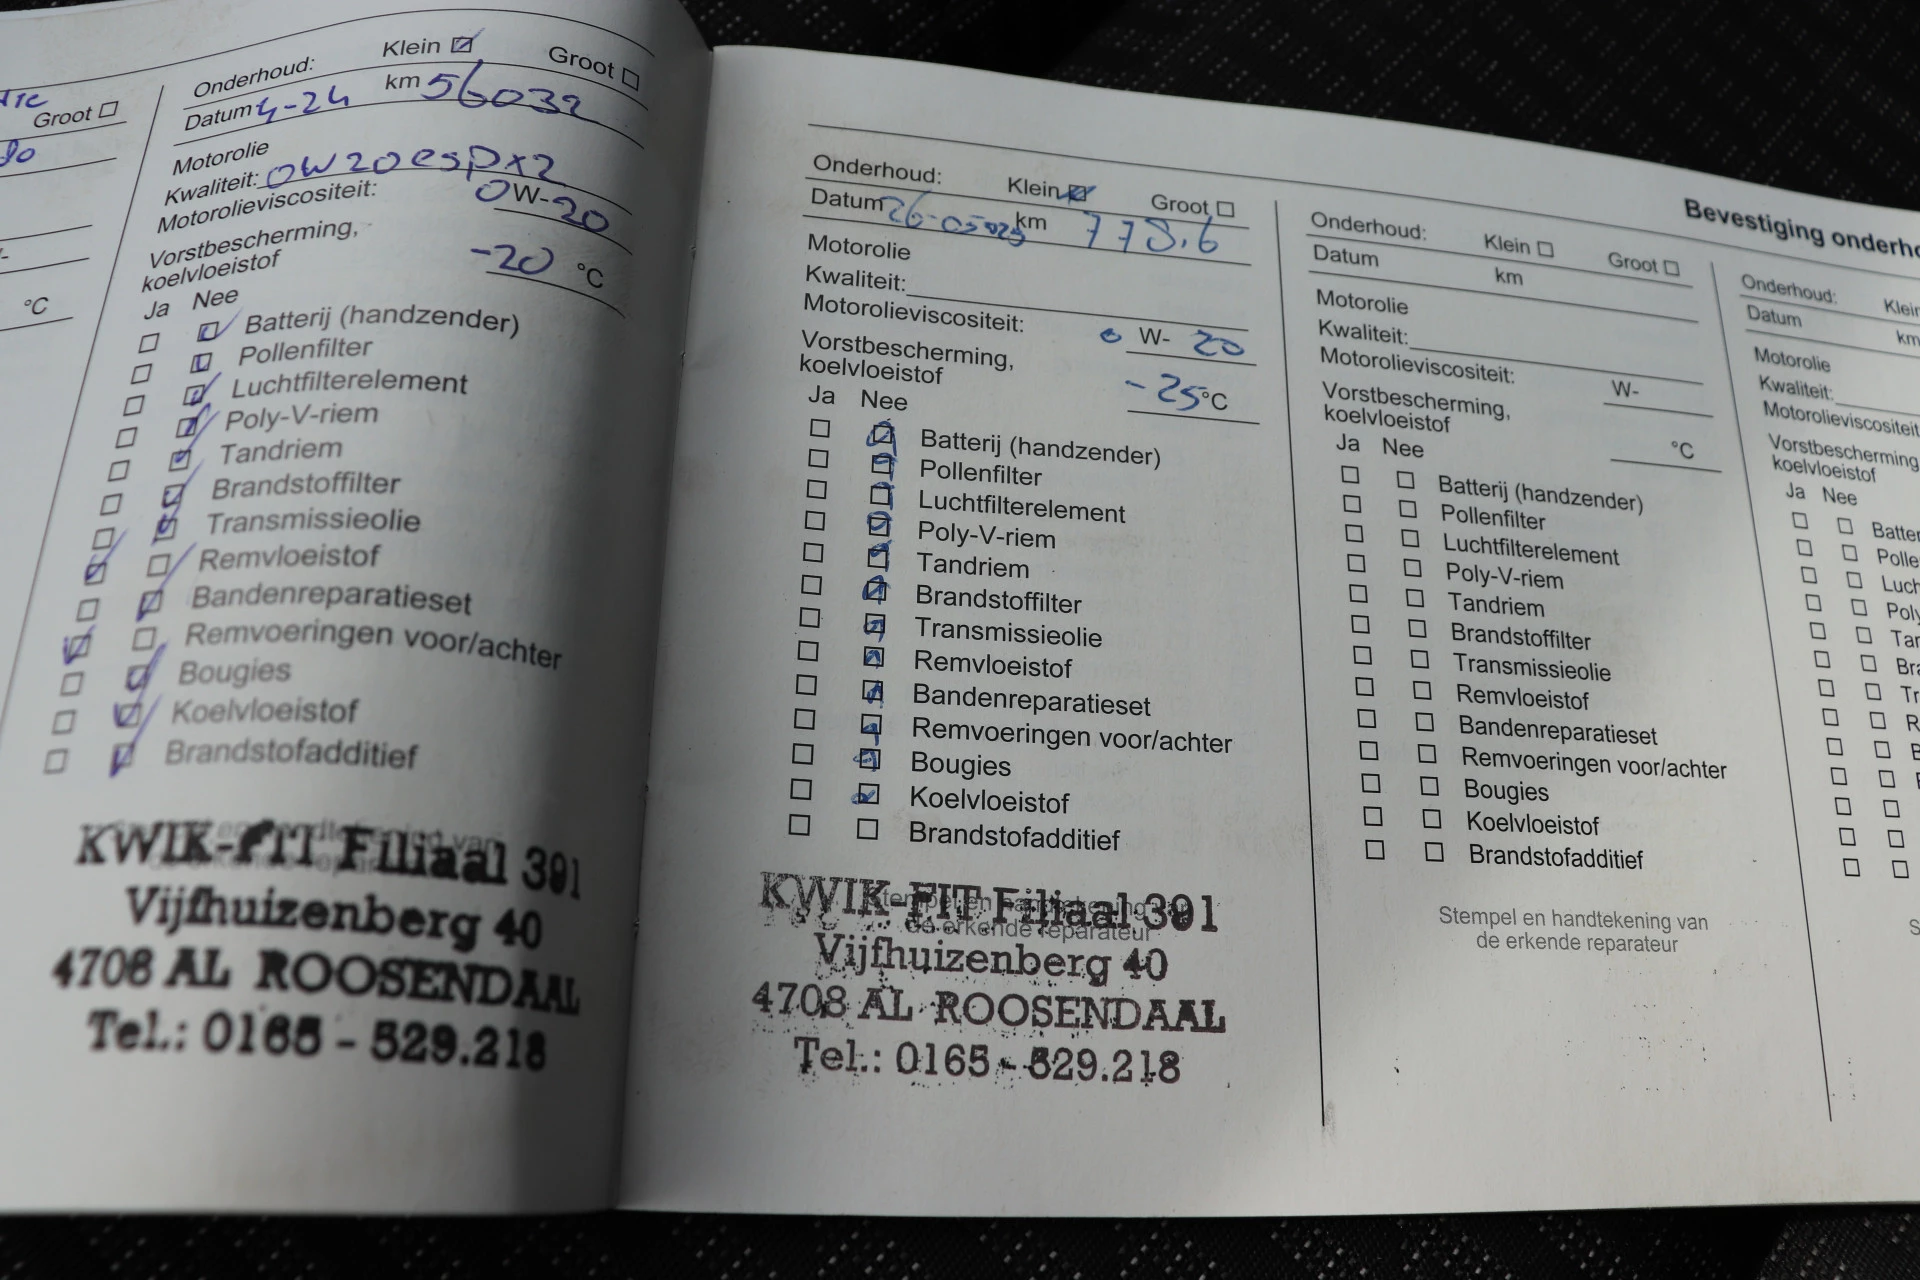 Groot
°C
Onderhoud: Klein Groot
Datum 4-24 km 56032
Motorolie
Kwaliteit: 0W20 esp x2
Motorolieviscositeit: 0 W- 20
Vorstbescherming,
koelvloeistof -20 °C
Ja Nee
Batterij (handzender)
Pollenfilter
Luchtfilterelement
Poly-V-riem
Tandriem
Brandstoffilter
Transmissieolie
Remvloeistof
Bandenreparatieset
Remvoeringen voor/achter
Bougies
Koelvloeistof
Brandstofadditief
KWIK-FIT Filiaal 391
Vijfhuizenberg 40
4708 AL ROOSENDAAL
Tel.: 0165 - 529.218
Onderhoud: Klein Groot
Datum km
Motorolie
Kwaliteit:
Motorolieviscositeit: 0 W- 20
Vorstbescherming,
koelvloeistof -25 °C
Ja Nee
Batterij (handzender)
Pollenfilter
Luchtfilterelement
Poly-V-riem
Tandriem
Brandstoffilter
Transmissieolie
Remvloeistof
Bandenreparatieset
Remvoeringen voor/achter
Bougies
Koelvloeistof
Brandstofadditief
Stempel en handtekening van
de erkende reparateur
KWIK-FIT Filiaal 391
Vijfhuizenberg 40
4708 AL ROOSENDAAL
Tel.: 0165 - 529.218
Bevestiging onderho
Onderhoud: Klein Groot
Datum km
Motorolie
Kwaliteit:
Motorolieviscositeit: W-
Vorstbescherming,
koelvloeistof °C
Ja Nee
Batterij (handzender)
Pollenfilter
Luchtfilterelement
Poly-V-riem
Tandriem
Brandstoffilter
Transmissieolie
Remvloeistof
Bandenreparatieset
Remvoeringen voor/achter
Bougies
Koelvloeistof
Brandstofadditief
Stempel en handtekening van
de erkende reparateur
Onderhoud: Klein
Datum km
Motorolie
Kwaliteit:
Motorolieviscositeit
Vorstbescherming,
koelvloeistof
Ja Nee
Batter
Polle
Luch
Poly
Tan
Bra
Tr
R
B